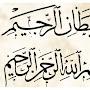 يطان الرجيم
الله الرحمن الرحيم